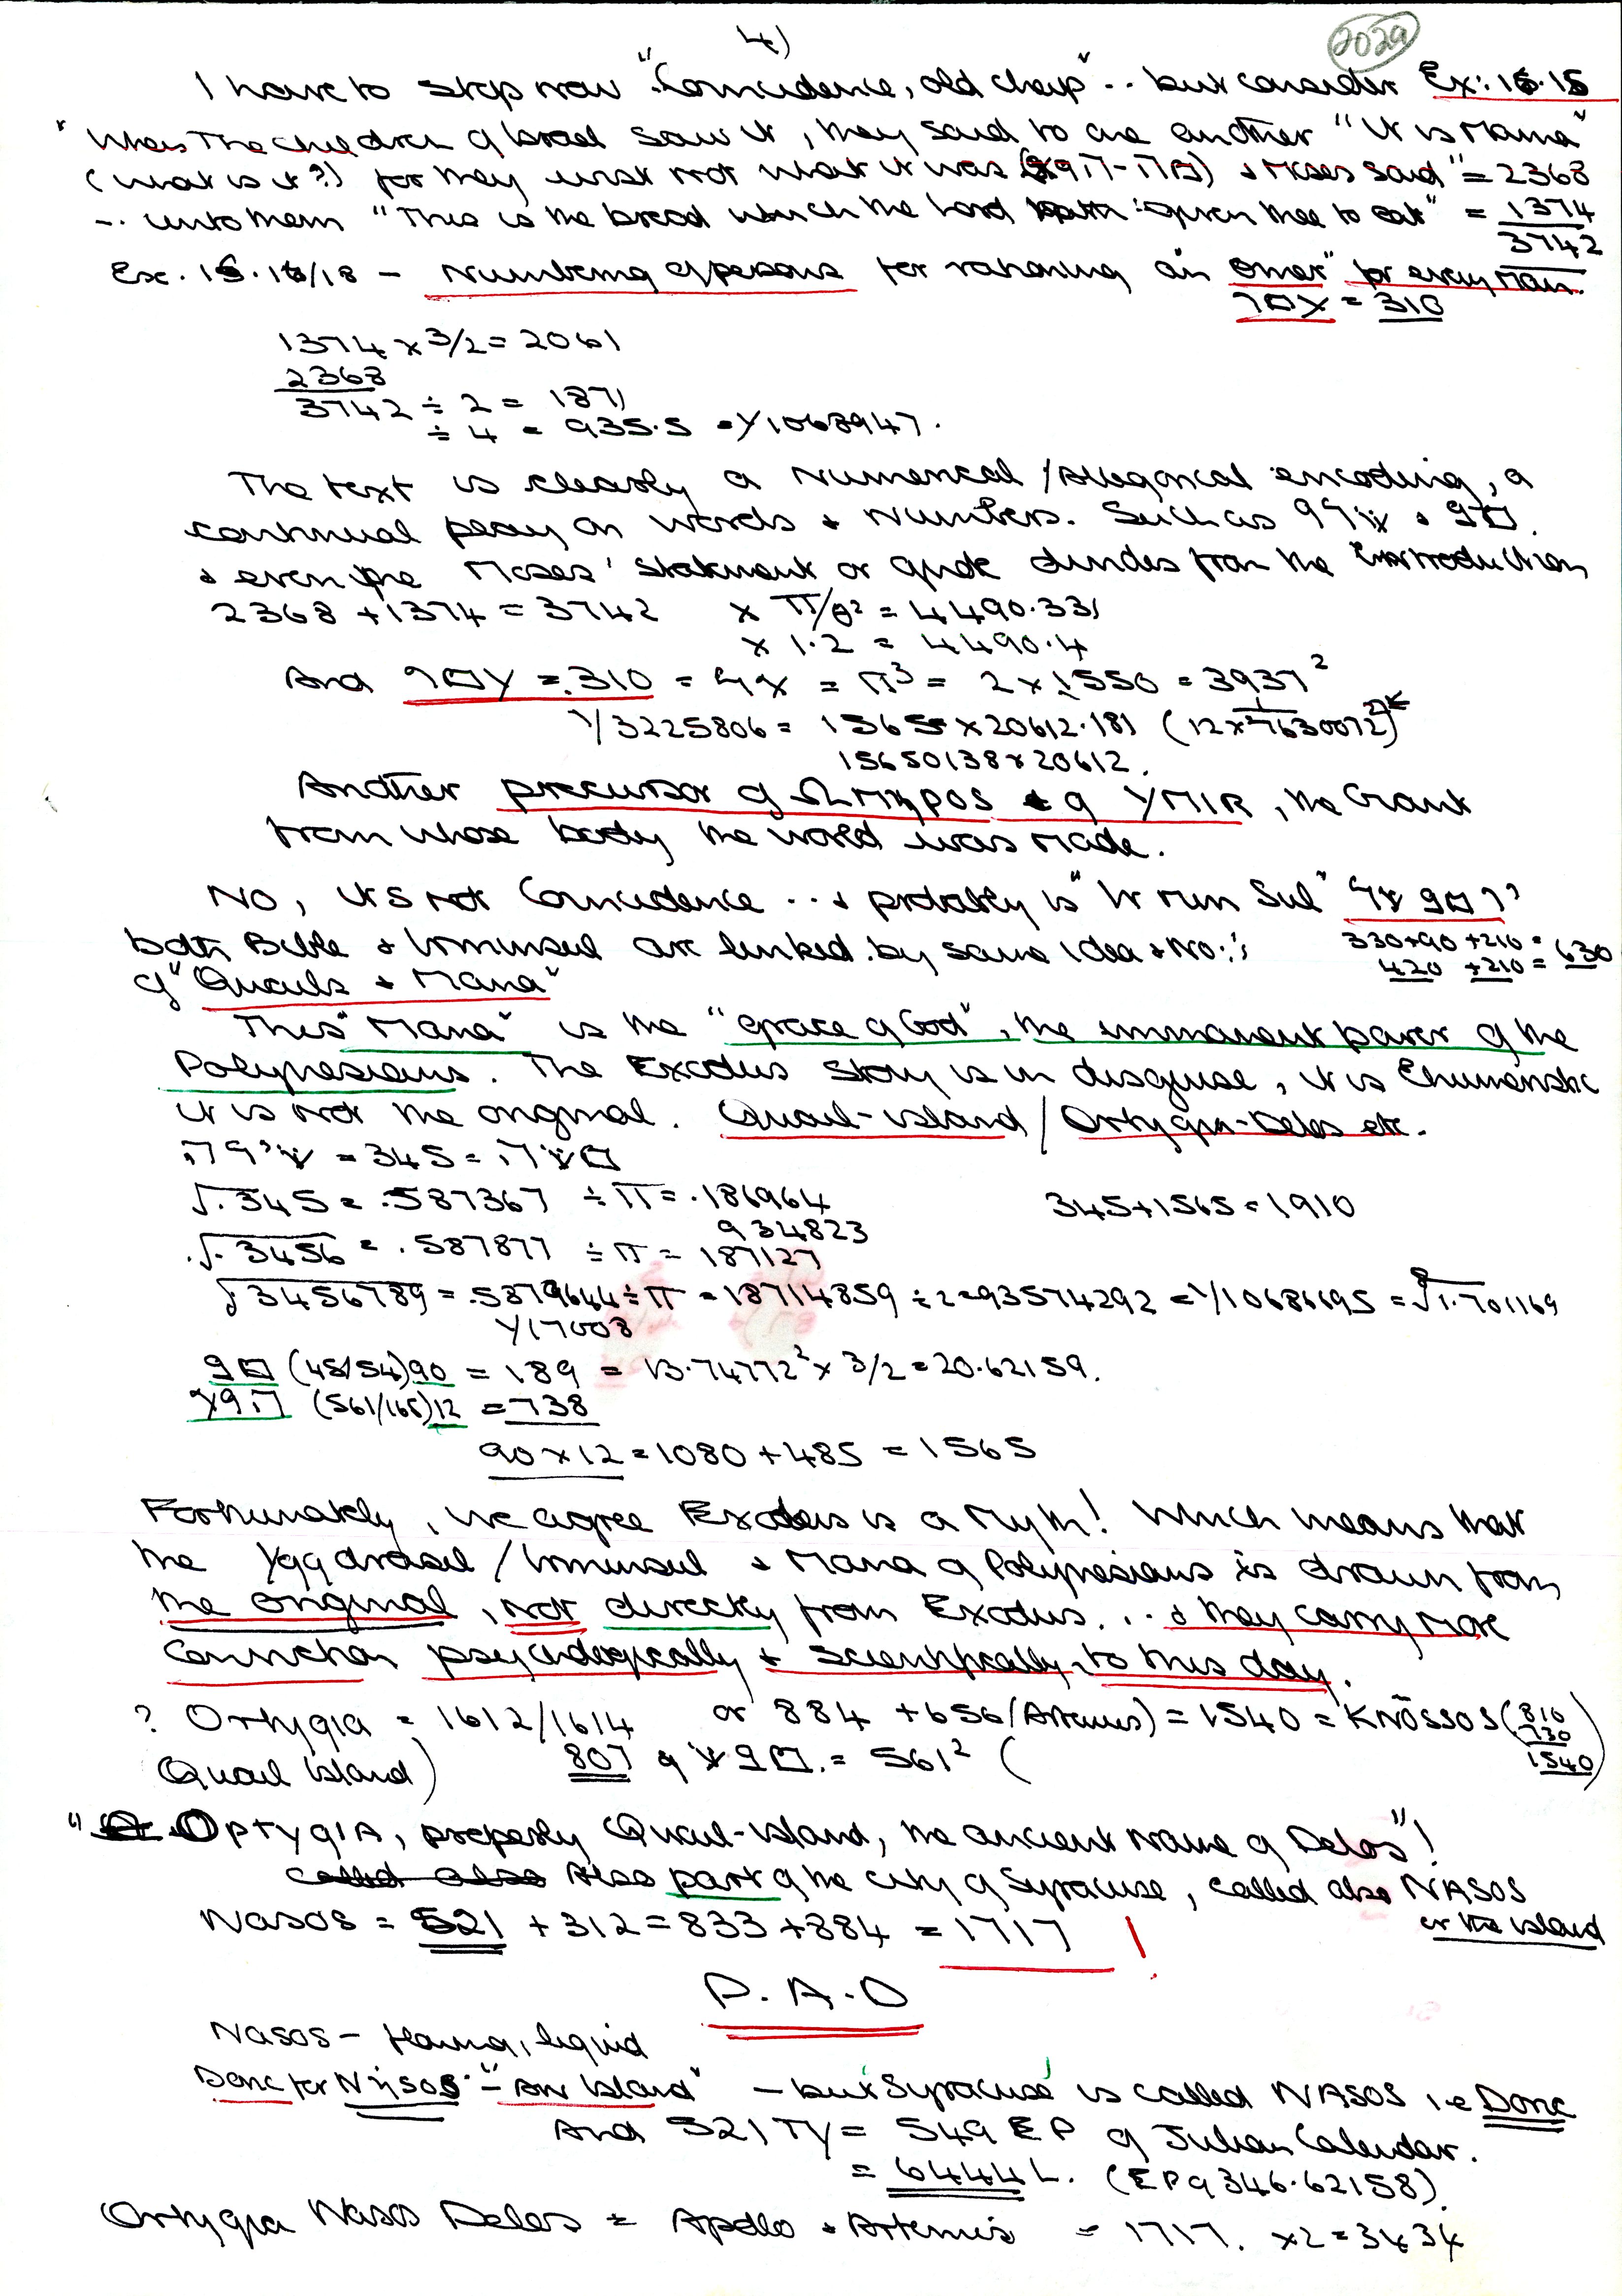 4)
2029
I have to stop now "Coincidence, old chap" .. but consider Ex: 16.15
"When the children of Israel saw it, they said to one another "It is Mana"
(what is it?) for they wist not what it was & Moses said" = 2368
-. unto them "This is the bread which the Lord hath given thee to eat" = 1374
3742
Ex. 16.16/18 - Numbering of persons for rationing an omer" for every man.
= 310
1374 x 3/2 = 2061
2368
3742 ÷ 2 = 1871
÷ 4 = 935.5 = 1/1068947.
The text is clearly a Numerical / Allegorical encoding, a
continual play on words & Numbers. Such as
& even the Moses' statement or quote divides from the Introduction
2368 + 1374 = 3742 x π/θ² = 4490.331
x 1.2 = 4490.4
And = 310 = = π³ = 2 x 1550 = 3937²
1/3225806 = 1565 x 20612.181 (12 x 7630072)
15650138 x 20612.
Another precursor of ΩMηρος & of YMIR, the Giant
from whose body the world was made.
No, it's not Coincidence ... & probably is "Ir min Sul"
both Bible & Irminsul are linked by same idea & No:'s
330+90+210 =
420 +210 = 630
of "Quails & Mana"
This "Mana" is the "grace of God", the immanent power of the
Polynesians. The Exodus story is in disguise, it is
it is not the original. Quail-island / Ortygia-Delos etc.
= 345 =
√.345 = .587367 ÷ π = .186964
934823
345+1565 = 1910
√.3456 = .587877 ÷ π = 187127
√3456789 = .5879644 ÷ π = 18714859 ÷ 2 = 93574292 = 1/10686695 = ⁸√1.701169
1/17008
(45/54) 90 = 189 = 13.74772² x 3/2 = 20.62159.
(561/165) 12 = 738
90 x 12 = 1080 + 485 = 1565
Fortunately, we agree Exodus is a Myth! Which means that
the Yggdrasil / Irminsul & Mana of Polynesians is drawn from
the original, not directly from Exodus... & they carry more
conviction psychologically & scientifically to this day.
? Ortygia = 1612/1614 or 884 + 656 (Artemis) = 1540 = KNŌSSOS (810
730
1540)
Quail Island) 807 of = 561² (
" OρTygIA, properly Quail-island, the ancient name of Delos"!
called also Also part of the city of Syracuse, called also NASOS
or the island
Nasos = 521 + 312 = 833 + 884 = 1717 !
P.A.O
Nasos - flowing, liquid
Doric for Nήsos - "An Island" - but 'Syracuse' is called NASOS i.e Doric
And 521 TY = 549 EP of Julian Calendar.
= 6444 L. (EP of 346.62158).
Ortygia Nasos Delos = Apollo & Artemis = 1717. x2 = 3434